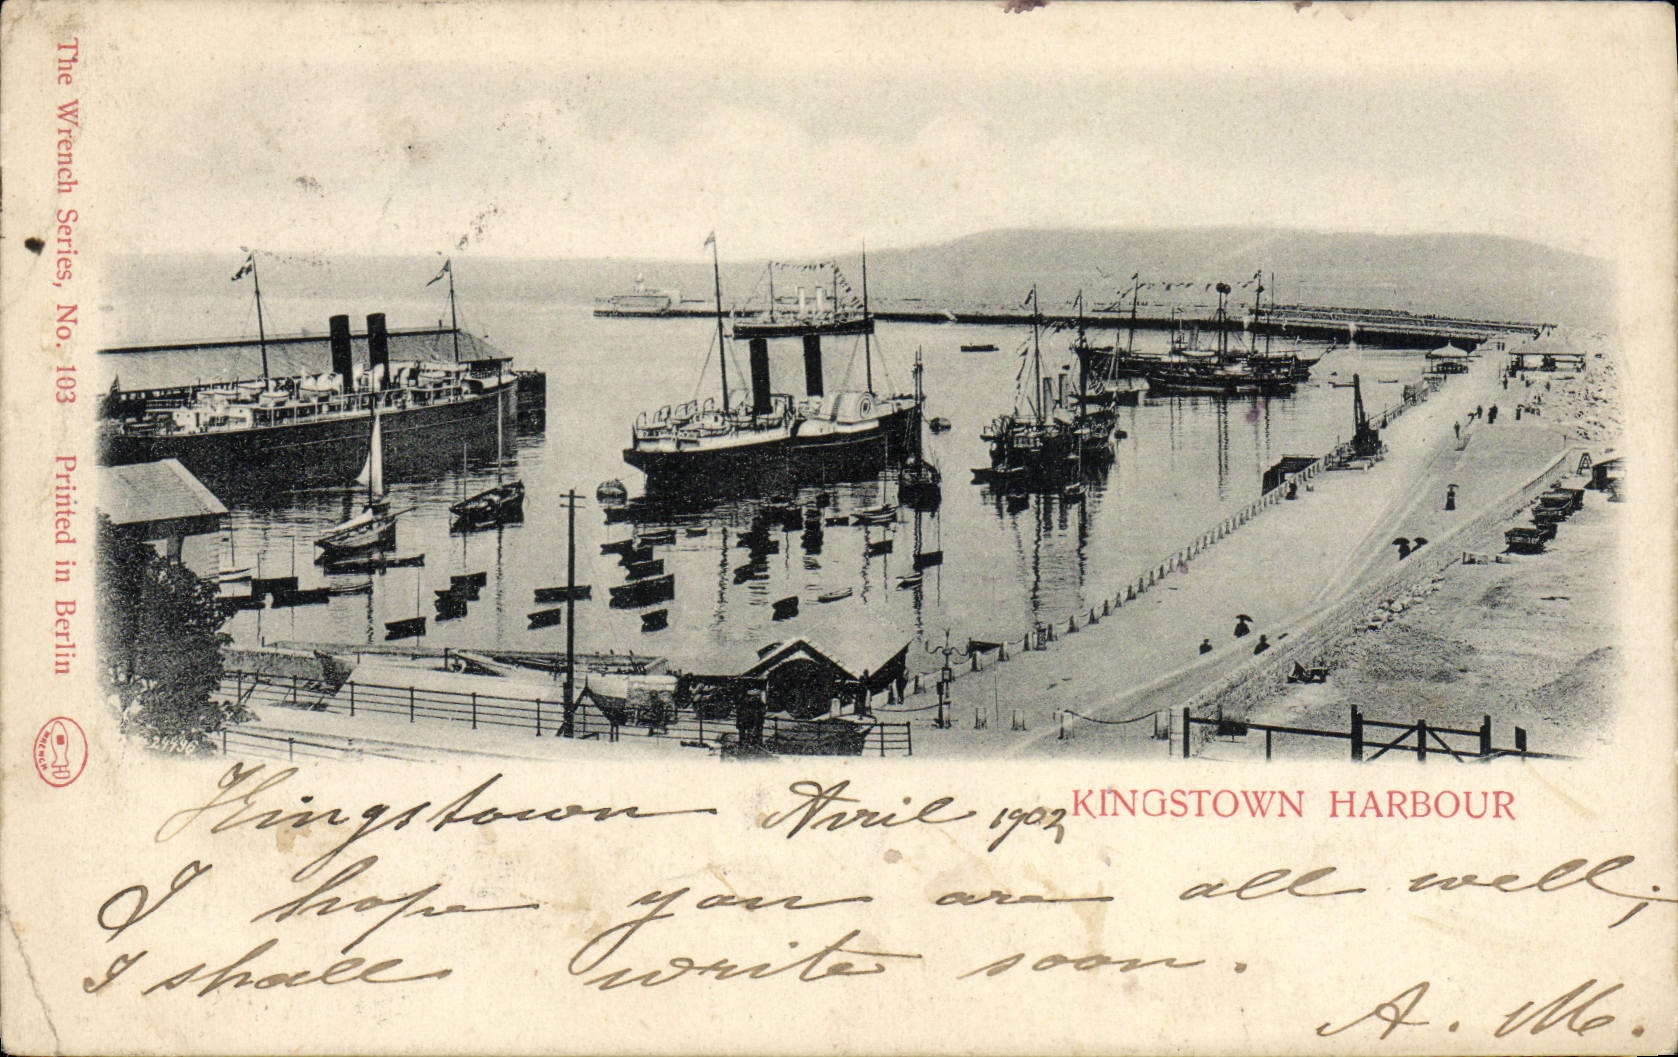 The Wrench Series, No. 103 Printed in Berlin
WRENCH
24496
KINGSTOWN HARBOUR
Kingstown April 1902
I hope you are all well;
I shall write soon.
A. M.